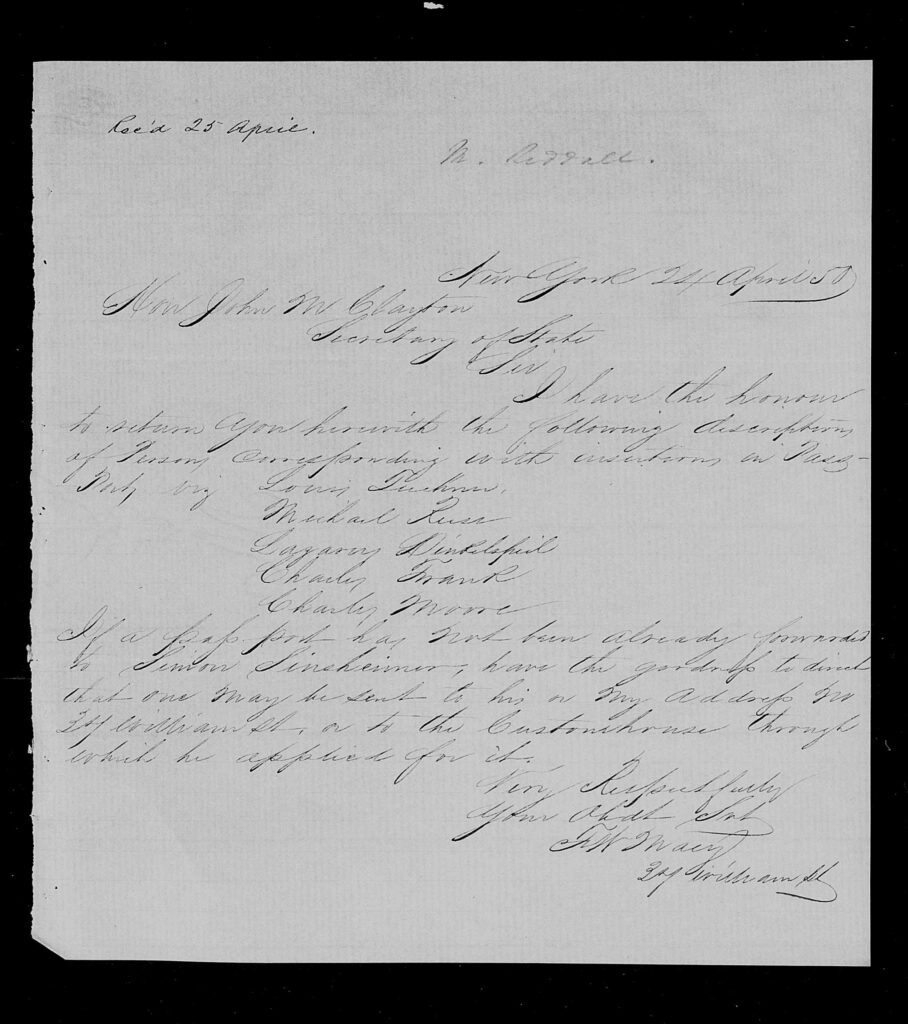 Rec'd 25 April.
M. Reddall.
New York 24 April 50
Hon John M Clayton
Secretary of State
Sir
I have the honour
to return you herewith the following descriptions
of Persons corresponding with insertions in Pass-
Ports viz Louis
Michael Reese
Lazarus Dinkelspiel
Charles Frank
Charles Moore
If a pass port has not been already forwarded
to Simon Sinsheimer, have the goodness to direct
that one may be sent to his or my address No
24 William St. or to the Customhouse through
which he applied for it.
Very Respectfully
Your Obdt Svt
24 William St